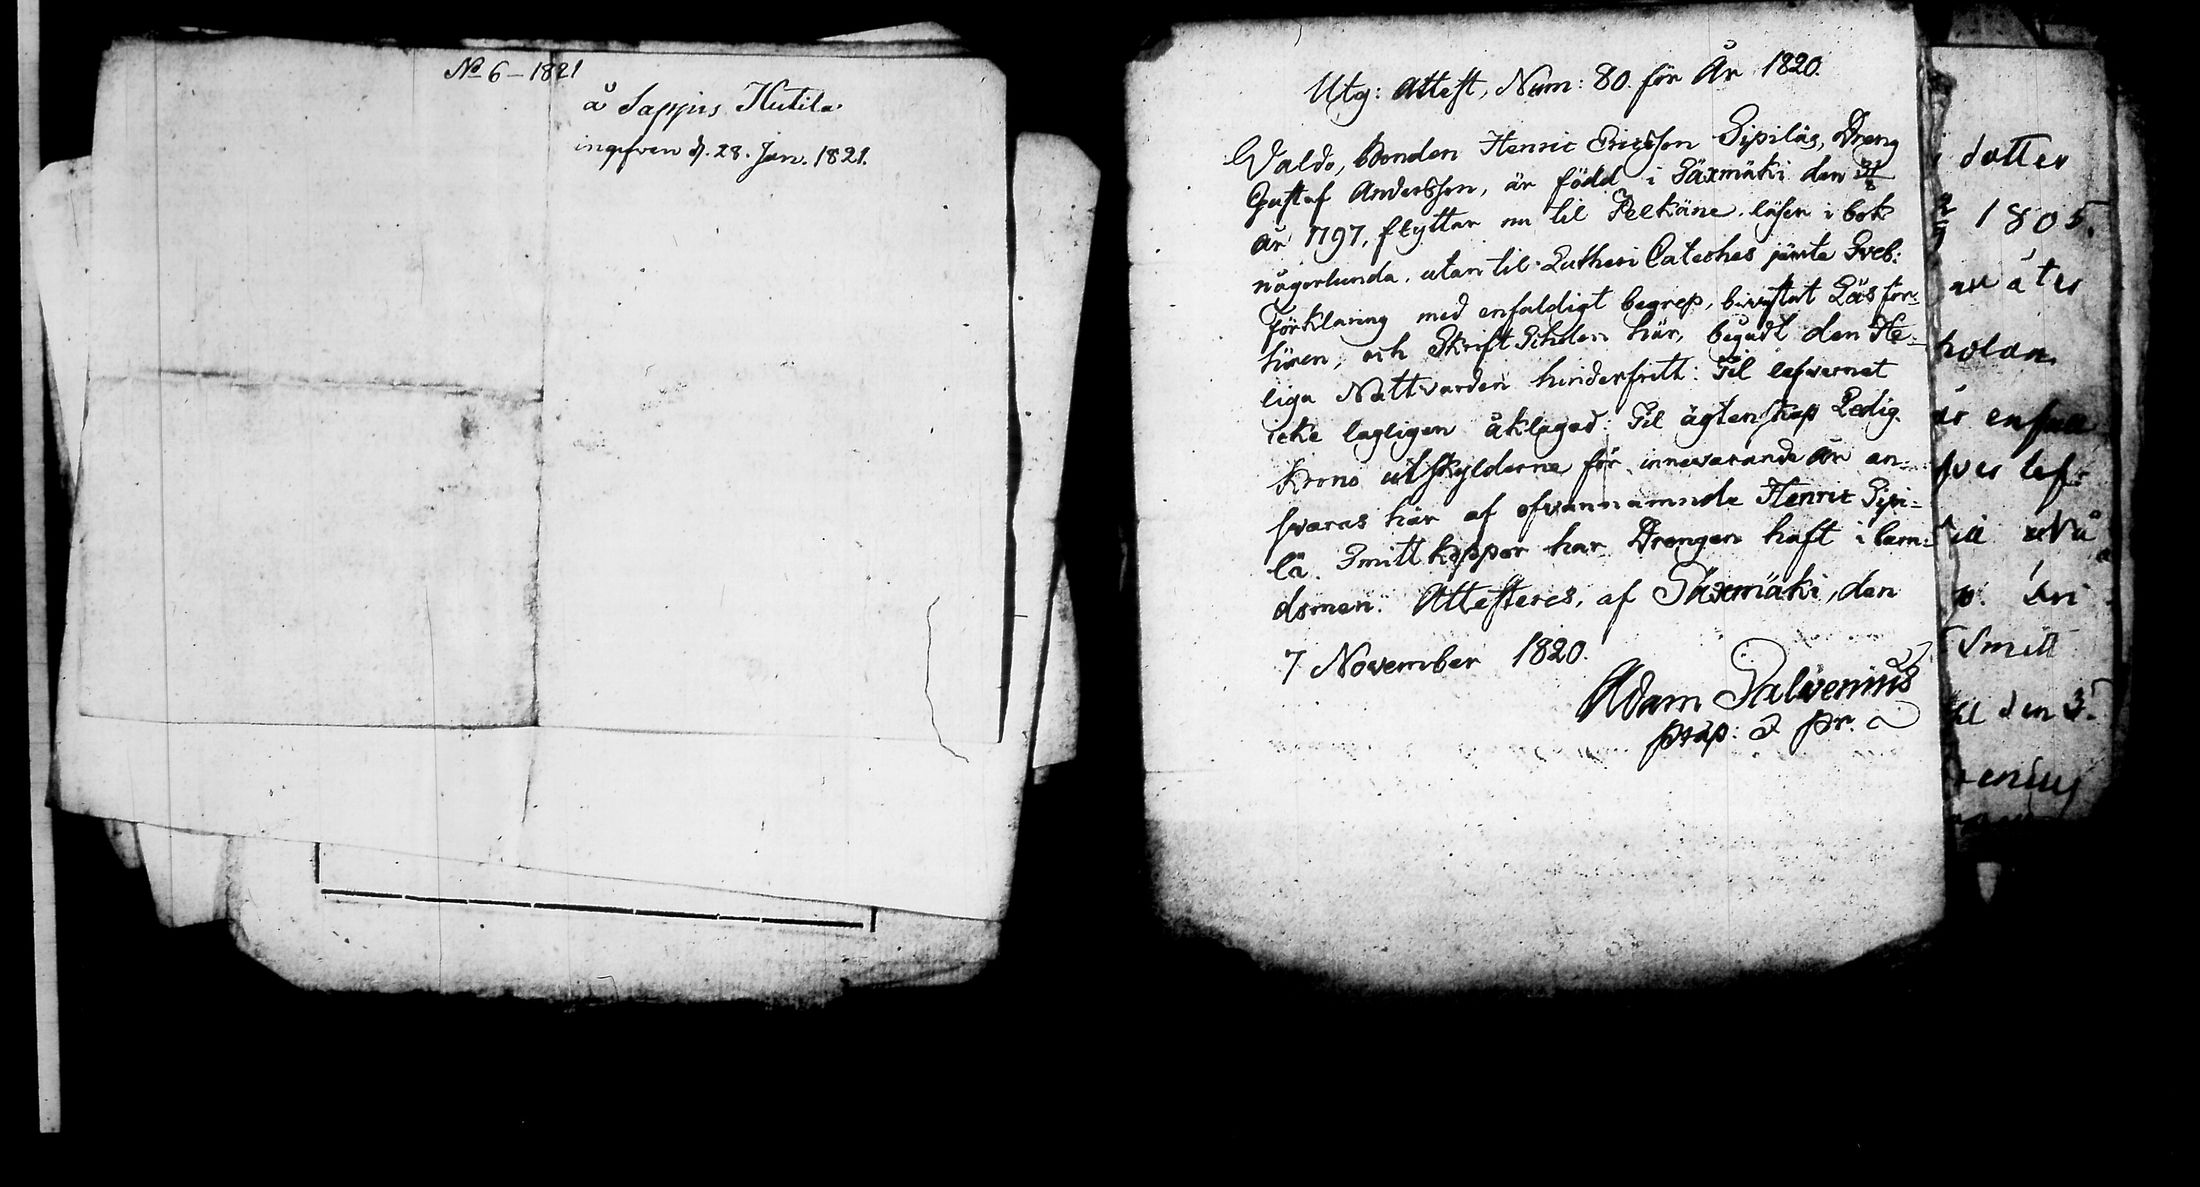 No 6 – 1821
å Sappis Kutila
ingifven d. 28. Jan. 1821.
Utg: Attest, Num: 80. för År 1820.
Waldo, Bonden Henric Ericsson Sipiläs, Dreng
Gustaf Andersson, är född i Säxmäki den 31/8
år 1797, flyttar nu til Pelkäne. läser i bok
någorlunda, utan til Lutheri Cateches jämte Sveb:
förklaring med enfaldigt begrep, bivistat Läsför-
hören, och Skrift Scholen här, begådt den He-
liga Nattvarden hinderfritt: Til lefvernet
icke lagligen åklagad: Til ägtenskap Ledig.
Krono utskylderne för innevarande År an-
svaras här af ofvannämnde Henric Sipi-
lä. Smittkoppor har Drengen haft i barn-
domen. Attesteres, af Säxmäki, den
7 November 1820.
Adam Salvenius
präp: & pr.
dotter
1805.
åter
enfall
lef:
Smitt
den 3.